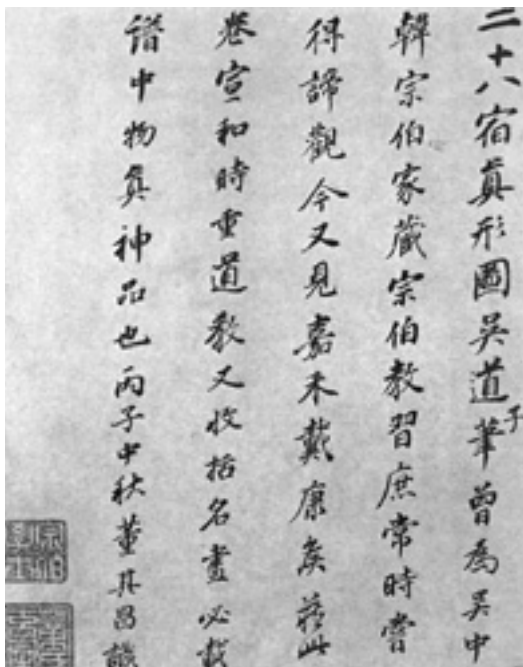 二十八宿真形圖吳道子筆曾為吳中
韓宗伯家藏宗伯教習庶常時嘗
得諦觀今又見嘉禾戴康侯藏此
卷宣和時重道教又收括名畫必載
譜中物真神品也丙子中秋董其昌識